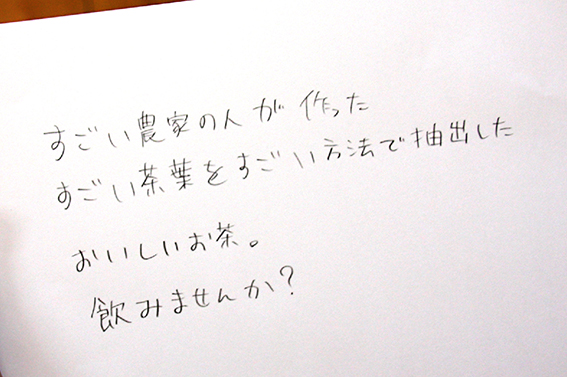 すごい農家の人が作った
すごい茶葉をすごい方法で抽出した
おいしいお茶。
飲みませんか?